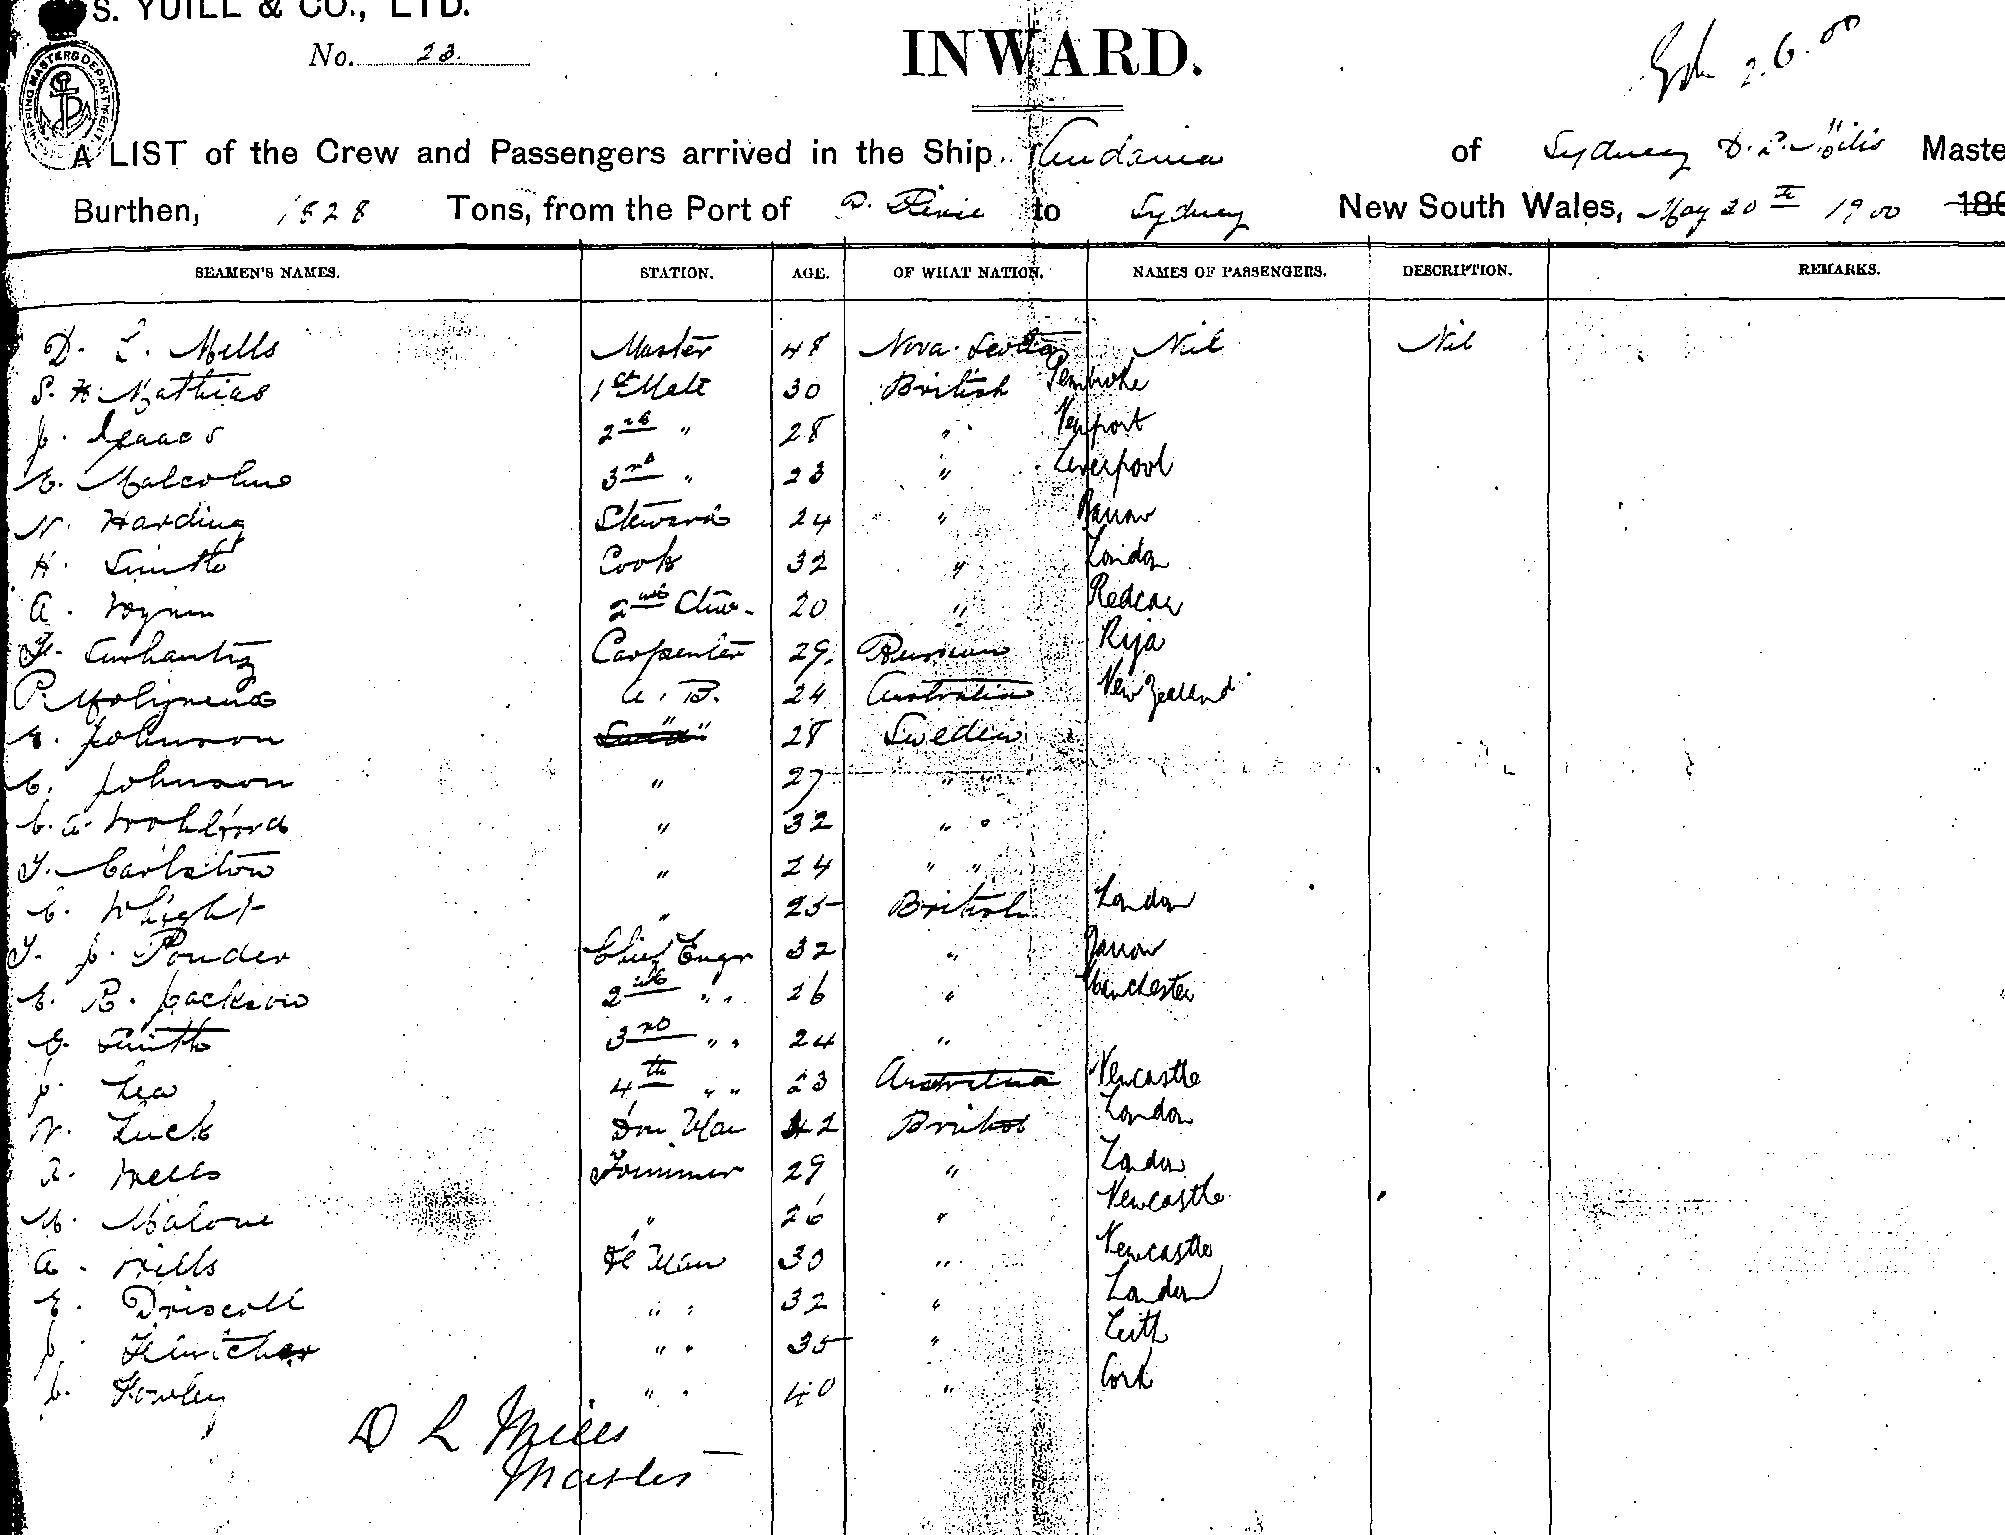 S. YUILL & CO., LTD.
No. 23.
INWARD.
SHIPPING MASTERS DEPARTMENT
A LIST of the Crew and Passengers arrived in the Ship of Sydney D. L. Mills Maste
Burthen, 1828 Tons, from the Port of P. Pirie to Sydney New South Wales, May 20th 1900 186
SEAMEN'S NAMES. STATION. AGE. OF WHAT NATION. NAMES OF PASSENGERS. DESCRIPTION. REMARKS.
D. L. Mills Master 48 Nova Scotia Nil Nil
S. H. Mathias 1st Mate 30 British Pembroke
J. Isaacs 2nd " 28 " Newport
E. Malcolm 3rd " 23 " Liverpool
N. Harding Steward 24 " Barrow
H. Smith Cook 32 " London
A. Wynn 2nd 20 " Redcar
Carpenter 29 Russian Riga
A. B. 24 Australia New Zealand
E. Johnson " 28 Sweden
C. Johnson " 27 " "
" 32 " "
" 24 " "
C. Whight " 25 British London
T. J. Pounder Chief Engr 32 " Barrow
E. R. Jackson 2nd " " 26 " Manchester
G. Smith 3rd " " 24 "
J. Lea 4th " " 23 Australia Newcastle
W. Luck Don Man 42 British London
A. Wells Trimmer 29 " London
M. Malone " 26 " Newcastle
A. Mills F Man 30 " Newcastle
E. Driscoll " " 32 " London
J. " " 35 " Leith
J. Fowley " " 40 " Cork
D L Mills
Master